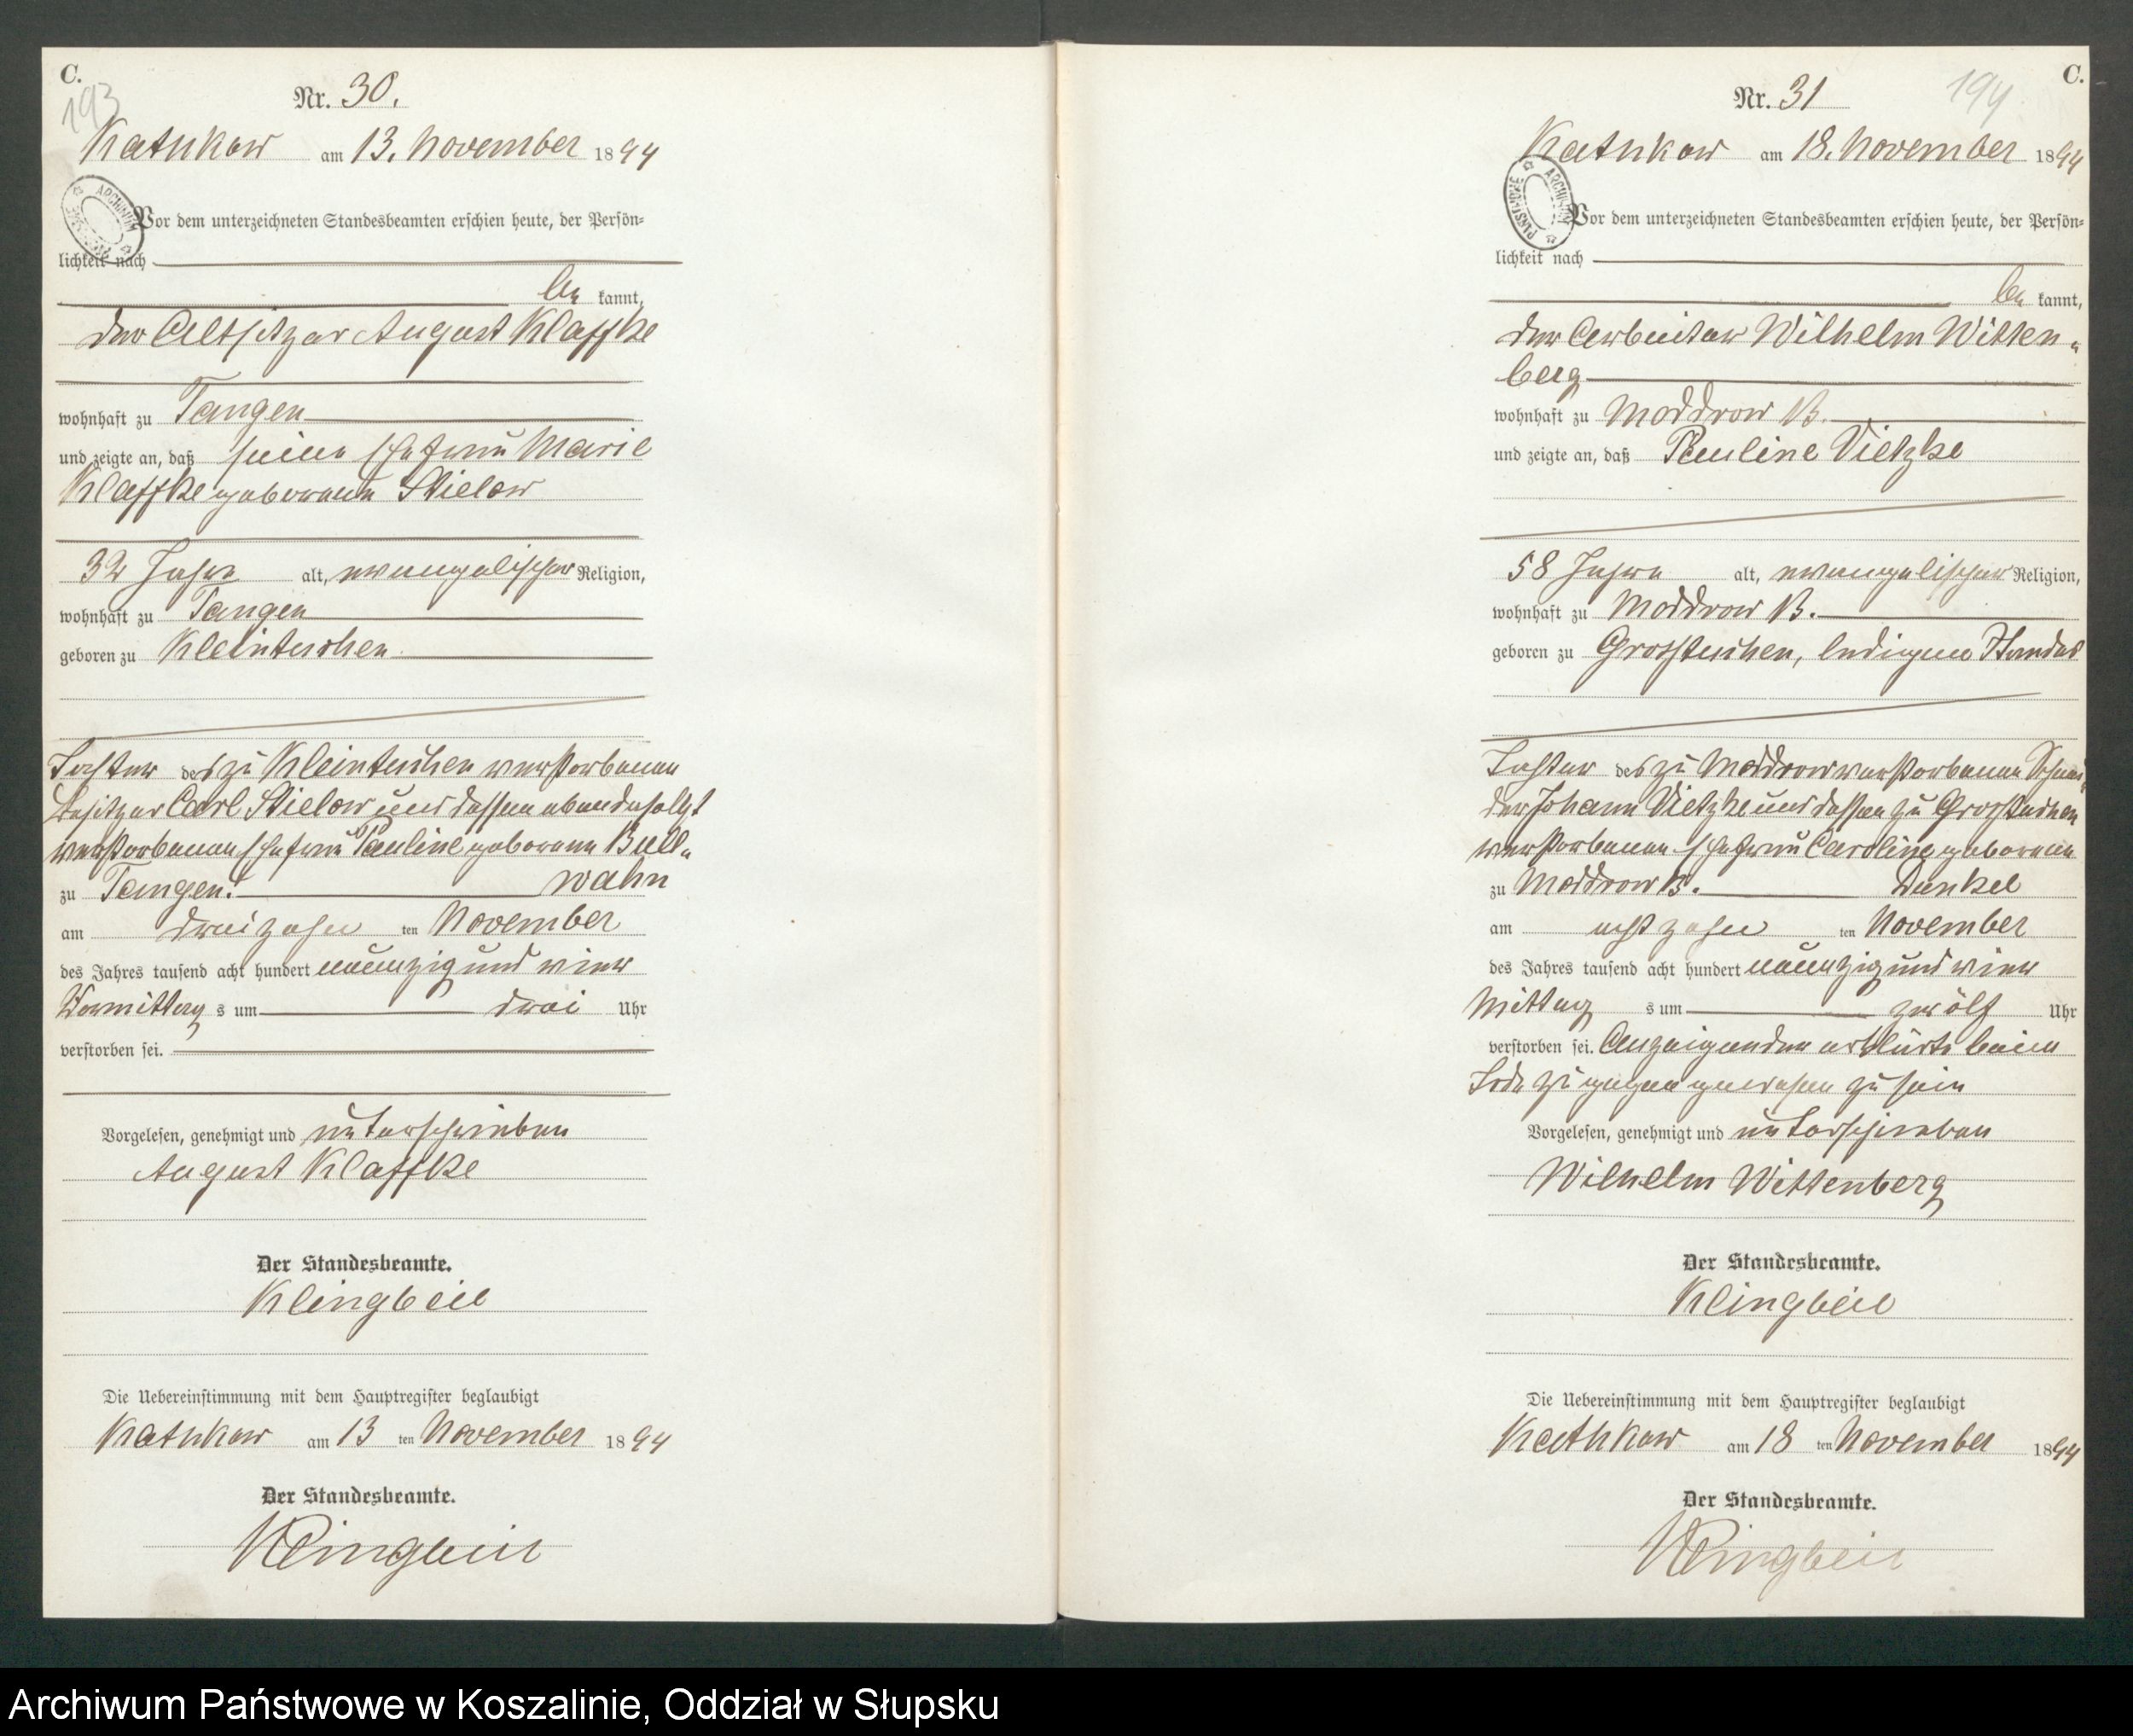 C.
193
Nr. 30.
Kathkow am 13. November 1894
ARCHIWUM
Vor dem unterzeichneten Standesbeamten erschien heute, der Persön=
lichkeit nach
be kannt,
der Altsitzer August Klaffke
wohnhaft zu Tangen
und zeigte an, daß seine Ehefrau Marie
Klaffke geborene Stielow
32 Jahre alt, evangelischer Religion,
wohnhaft zu Tangen
geboren zu Kleintuchen
Tochter des zu Kleintuchen verstorbenen
Besitzer Carl Stielow und dessen ebendaselbst
verstorbenen Ehefrau Pauline geborene Bull=
zu Tangen. wahn
am dreizehn ten November
des Jahres tausend acht hundert neunzig und vier
Vormittag s um drei Uhr
verstorben sei.
Vorgelesen, genehmigt und unterschrieben
August Klaffke
Der Standesbeamte.
Klingbeil
Die Uebereinstimmung mit dem Hauptregister beglaubigt
Kathkow am 13 ten November 1894
Der Standesbeamte.
Klingbeil
C.
194
Nr. 31
Kathkow am 18. November 1894
ARCHIWUM PAŃSTWOWE
Vor dem unterzeichneten Standesbeamten erschien heute, der Persön=
lichkeit nach
be kannt,
der Arbeiter Wilhelm Witten=
berg
wohnhaft zu Moddrow B.
und zeigte an, daß Pauline Vietzke
58 Jahre alt, evangelischer Religion,
wohnhaft zu Moddrow B.
geboren zu Grosstuchen, ledigen Standes
Tochter des zu Moddrow verstorbenen Schnei
der Johann Vietzke und dessen zu Grosstuchen
verstorbenen Ehefrau Caroline geborene
zu Moddrow B. Dunkel
am acht zehn ten November
des Jahres tausend acht hundert neunzig und vier
Mittag s um zwölf Uhr
verstorben sei. Anzeigender erklärte beim
Tode zugegen gewesen zu sein
Vorgelesen, genehmigt und unterschrieben
Wilhelm Wittenberg
Der Standesbeamte.
Klingbeil
Die Uebereinstimmung mit dem Hauptregister beglaubigt
Kathkow am 18 ten November 1894
Der Standesbeamte.
Klingbeil
Archiwum Państwowe w Koszalinie, Oddział w Słupsku